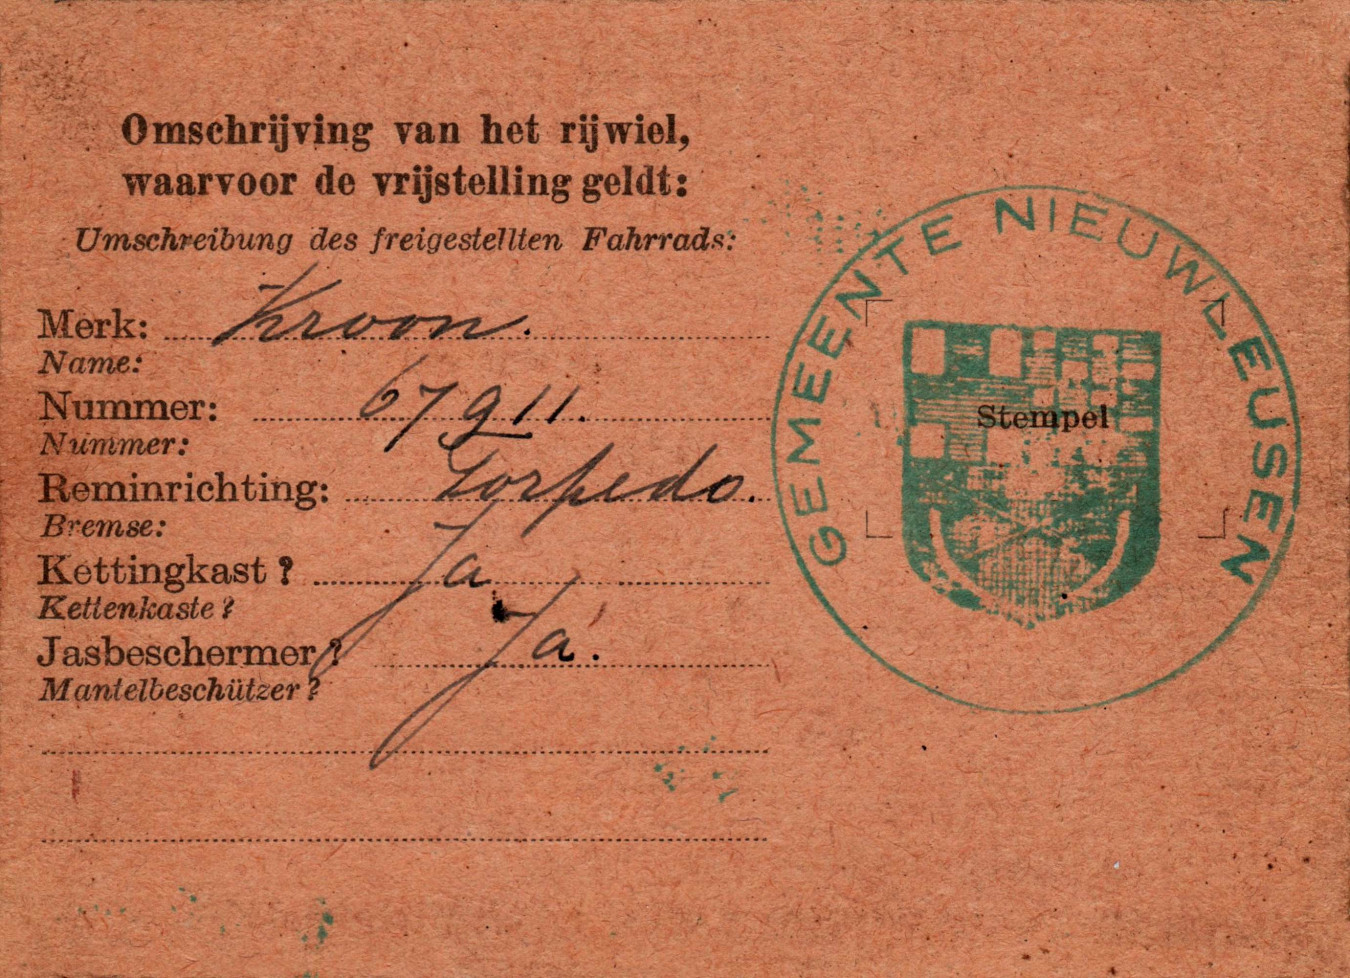 Omschrijving van het rijwiel,
waarvoor de vrijstelling geldt:
Umschreibung des freigestellten Fahrrads:
Merk: Kroon.
Name:
Nummer: 67911.
Nummer:
Reminrichting: Torpedo.
Bremse:
Kettingkast? Ja
Kettenkaste?
Jasbeschermer? Ja.
Mantelbeschützer?
GEMEENTE NIEUWLEUSEN
Stempel